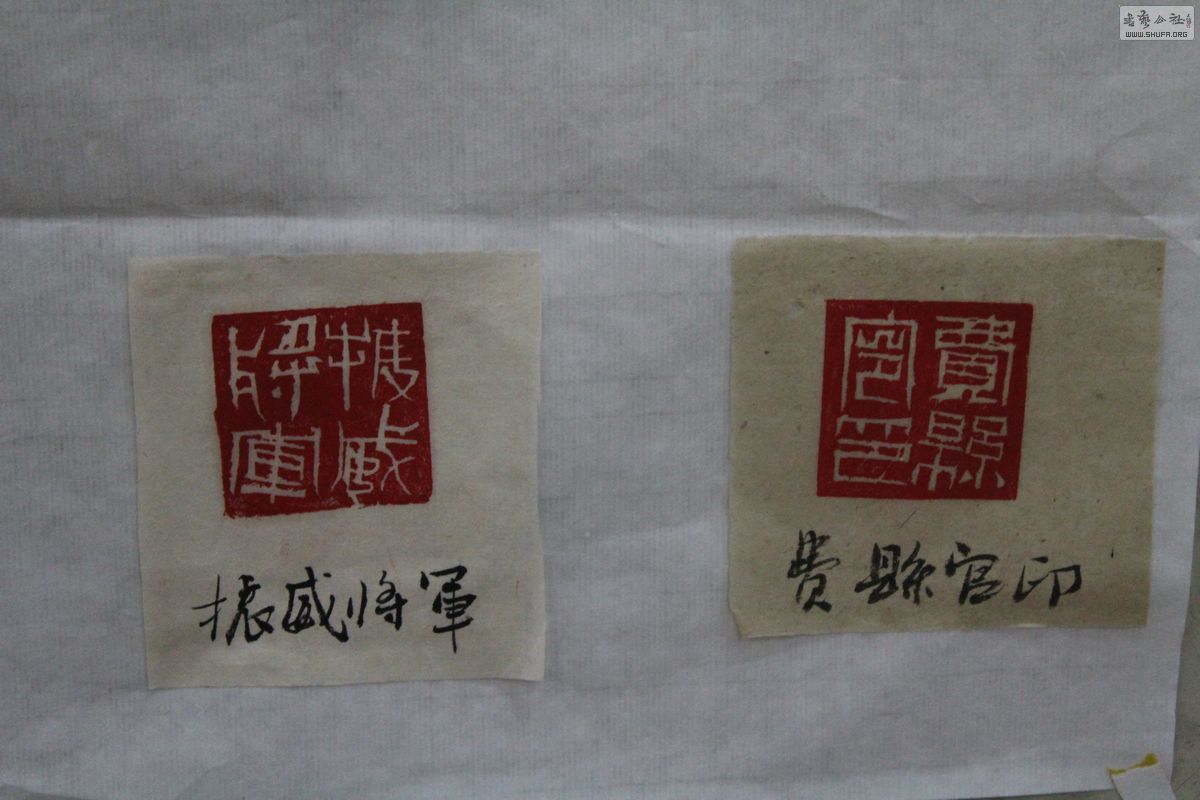 书艺公社
WWW.SHUFA.ORG
振威將軍
費縣官印
振威將軍
費縣官印